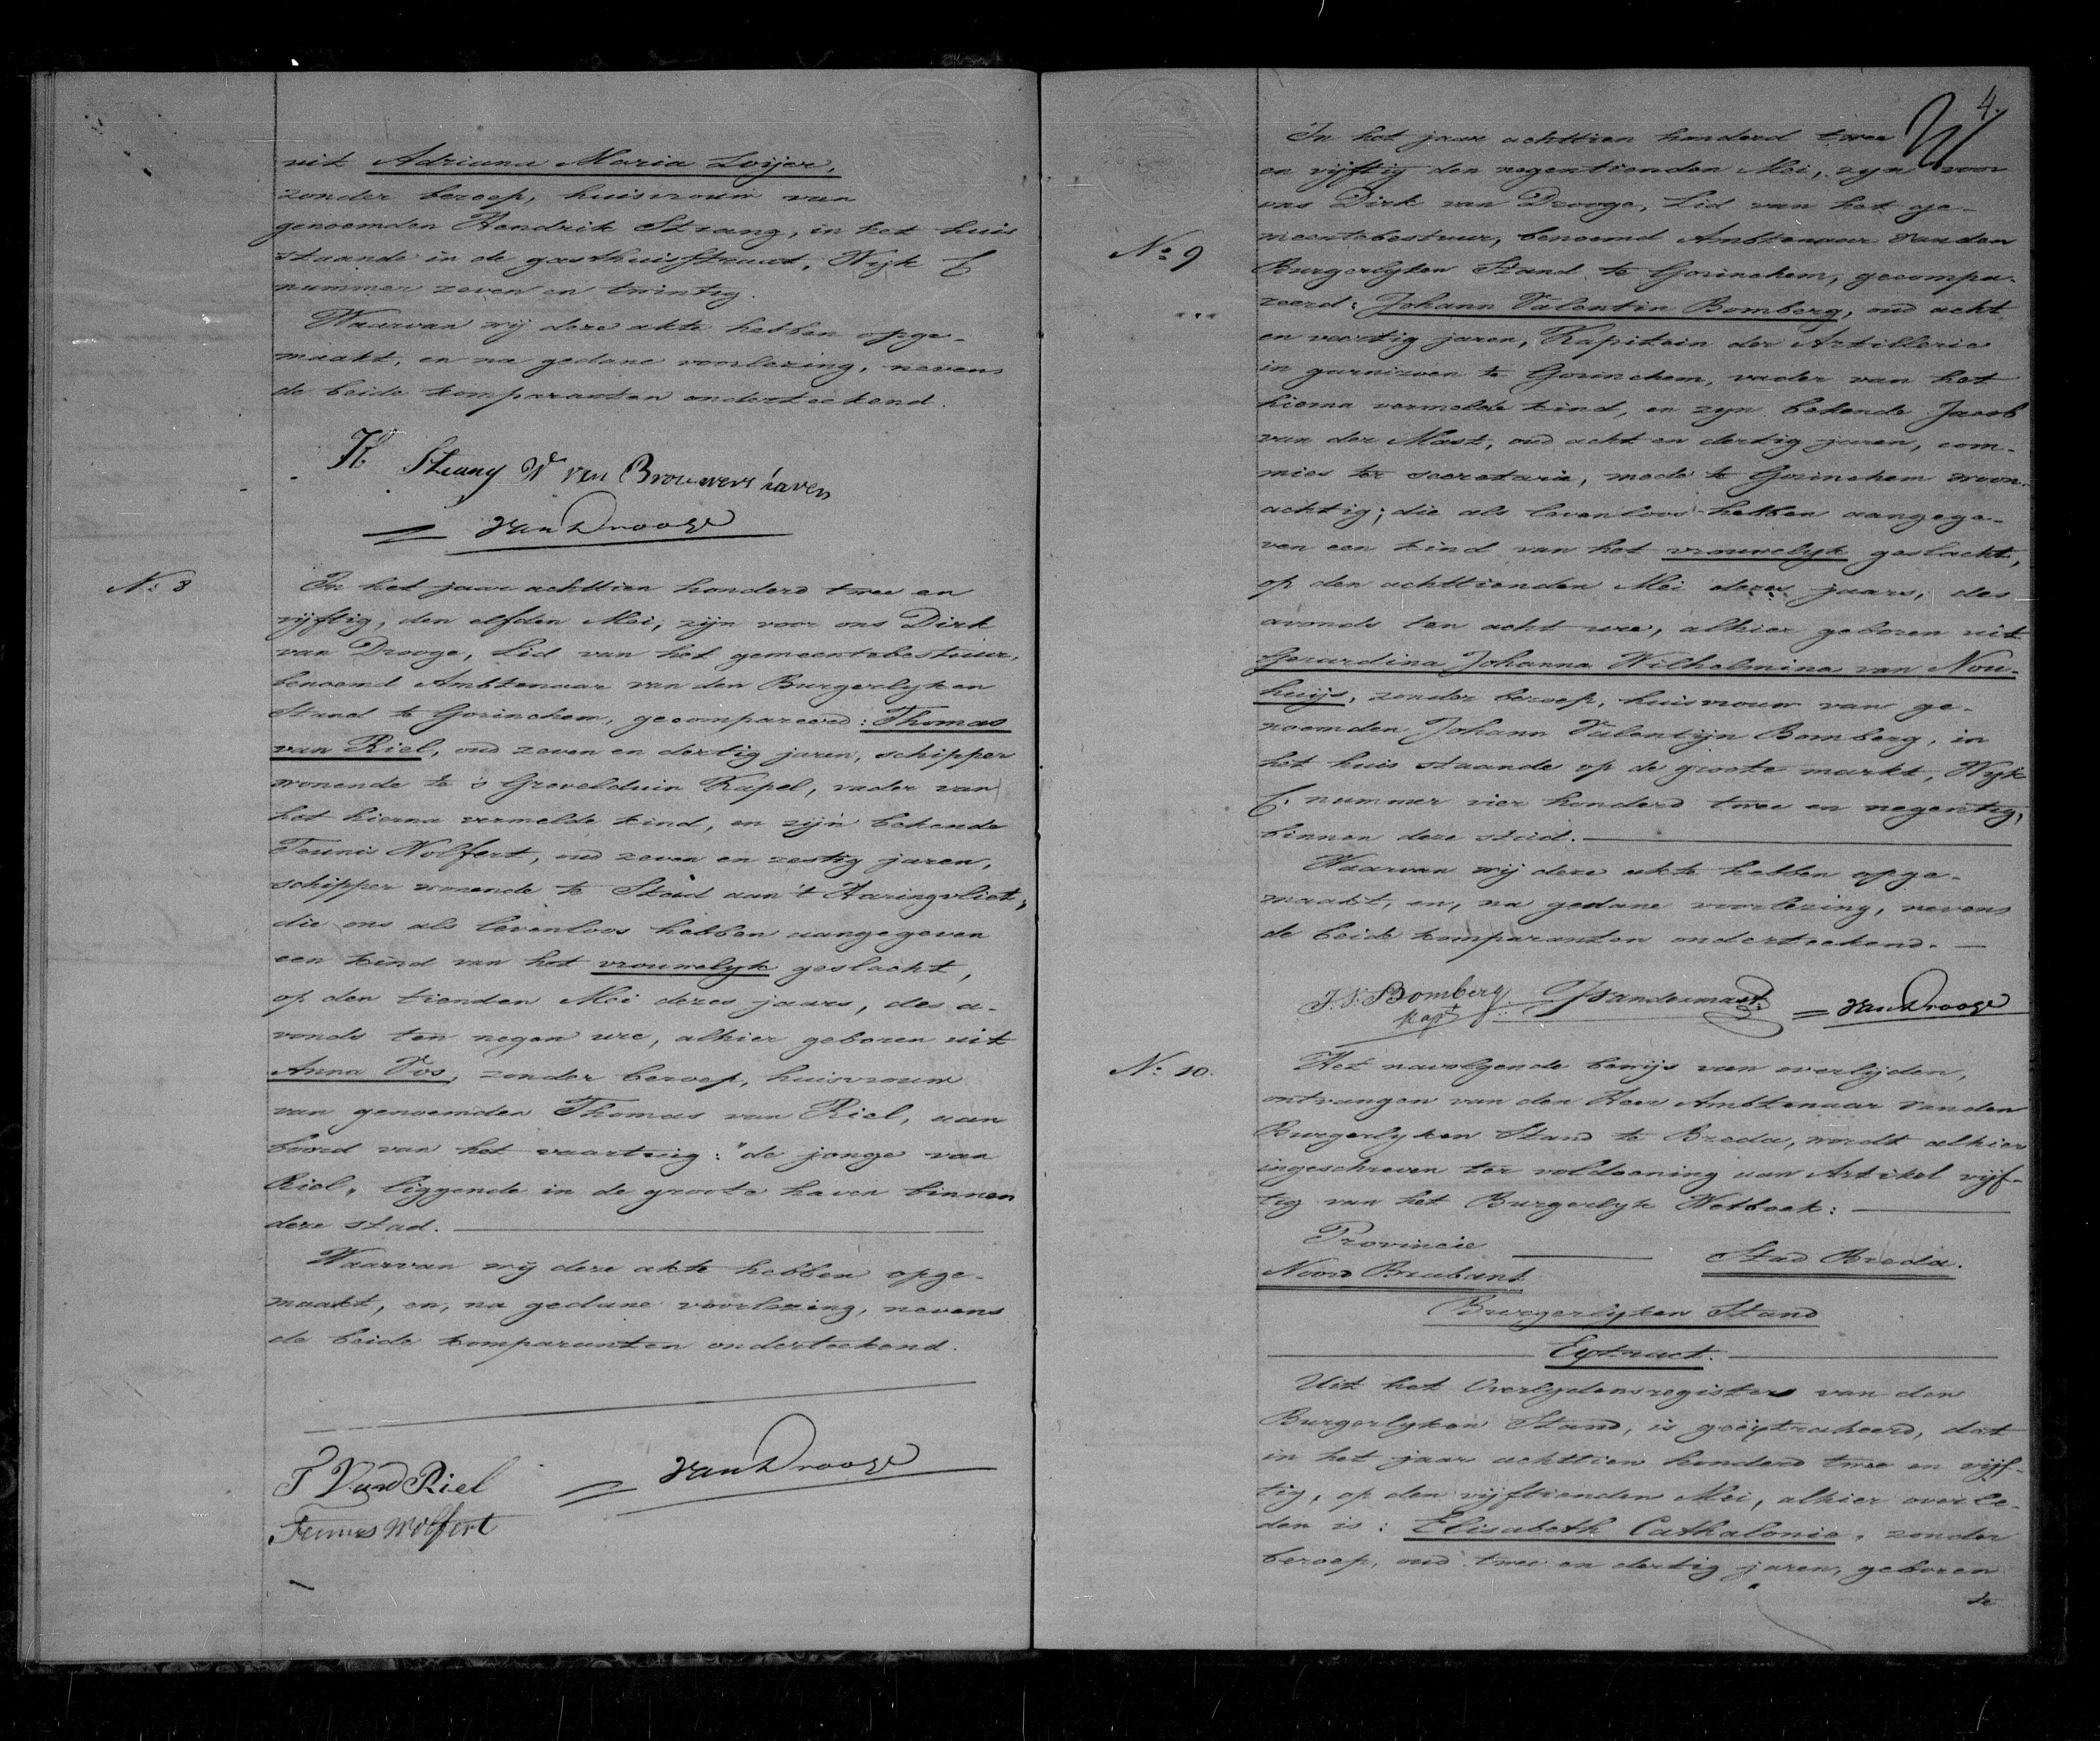 uit Adriana Maria Loijer,
zonder beroep, huisvrouw van
genoemden Hendrik Strang, in het huis
staande in de gasthuisstraat, Wijk C
nummer zeven en twintig.
Waarvan wij deze akte hebben opge-
maakt, en na gedane voorlezing, nevens
de beide komparanten onderteekend.
H. Strang W van Brouwershaven
van Drooge
No. 8
In het jaar achttien honderd twee en
vijftig, den elfden Mei, zijn voor ons Dirk
van Drooge, Lid van het gemeentebestuur,
benoemd Ambtenaar van den Burgerlyken
Stand te Gorinchem, gecompareerd: Thomas
van Riel, oud zeven en dertig jaren, schipper
wonende te 's Grevelduin Kapel, vader van
het hierna vermelde kind, en zijn bekende
Teunis Wolfert, oud zeven en zestig jaren,
schipper wonende te Stad aan 't Haringvliet,
die ons als levenloos hebben aangegeven
een kind van het vrouwelyk geslacht,
op den tienden Mei dezes jaars, des a-
vonds ten negen ure, alhier geboren uit
Anna Vos, zonder beroep, huisvrouw
van genoemden Thomas van Riel, aan
boord van het vaartuig: "de jonge van
Riel" liggende in de groote haven binnen
deze stad.
Waarvan wij deze akte hebben opge-
maakt, en, na gedane voorlezing, nevens
de beide komparanten onderteekend.
T Van Riel
van Drooge
Teunes Wolfert
4.
No. 9
In het jaar achttien honderd twee
en vijftig den negentienden Mei, zyn voor
ons Dirk van Drooge, Lid van het ge-
meentebestuur, benoemd Ambtenaar van den
Burgerlyken Stand te Gorinchem, gecompa-
reerd: Johann Valentin Bomberg, oud acht
en veertig jaren, Kapitein der Artillerie
in garnizoen te Gorinchem, vader van het
hierna vermelde kind, en zyn bekende Jacob
van der Mast, oud acht en dertig jaren, com-
mies ter secretarie, mede te Gorinchem woon-
achtig; die als levenloos hebben aangege-
ven een kind van het vrouwelyk geslacht,
op den achttienden Mei dezes jaars, des
avonds ten acht ure, alhier geboren uit
Gerardina Johanna Wilhelmina van Nou-
huijs, zonder beroep, huisvrouw van ge-
noemden Johann Valentijn Bomberg, in
het huis staande op de groote markt, Wijk
C. nummer vier honderd twee en negentig,
binnen deze stad.
Waarvan wij deze akte hebben opge-
maakt, en, na gedane voorlezing, nevens
de beide komparanten onderteekend.
J. V. Bomberg JvanderMast van Drooge
kapt
No. 10.
Het navolgende bewijs van overlijden,
ontvangen van den Heer Ambtenaar van den
Burgerlyken Stand te Breda, wordt alhier
ingeschreven ter voldoening aan Artikel vijf-
tig van het Burgerlyk Wetboek:
Provincie
Stad Breda.
Noord Brabant
Burgerlyken Stand
Extract.
Uit het Overlydensregister van den
Burgerlyken Stand, is geëxtraheerd, dat
in het jaar achttien honderd twee en vijf-
tig, op den vijftienden Mei, alhier overle-
den is: Elisabeth Cathalonie, zonder
beroep, oud twee en dertig jaren, geboren
te